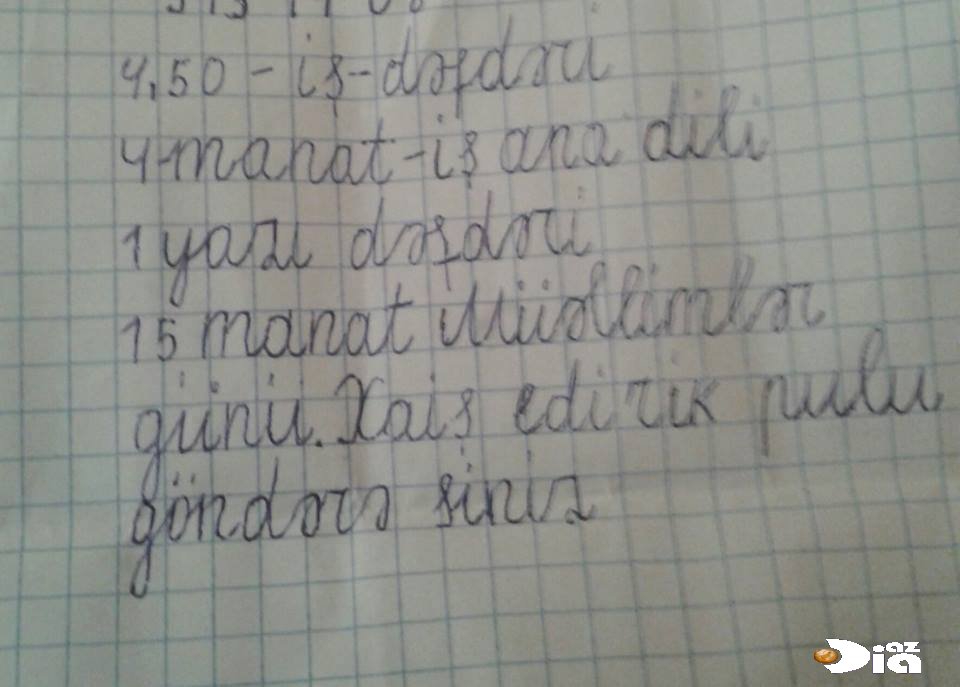 4,50 - iş - dəfdəri
4 manat - iş ana dili
1 yazı dəfdəri
15 manat Müəllimlər
günü. Xaiş edirik pulu
göndərə siniz
Diaaz